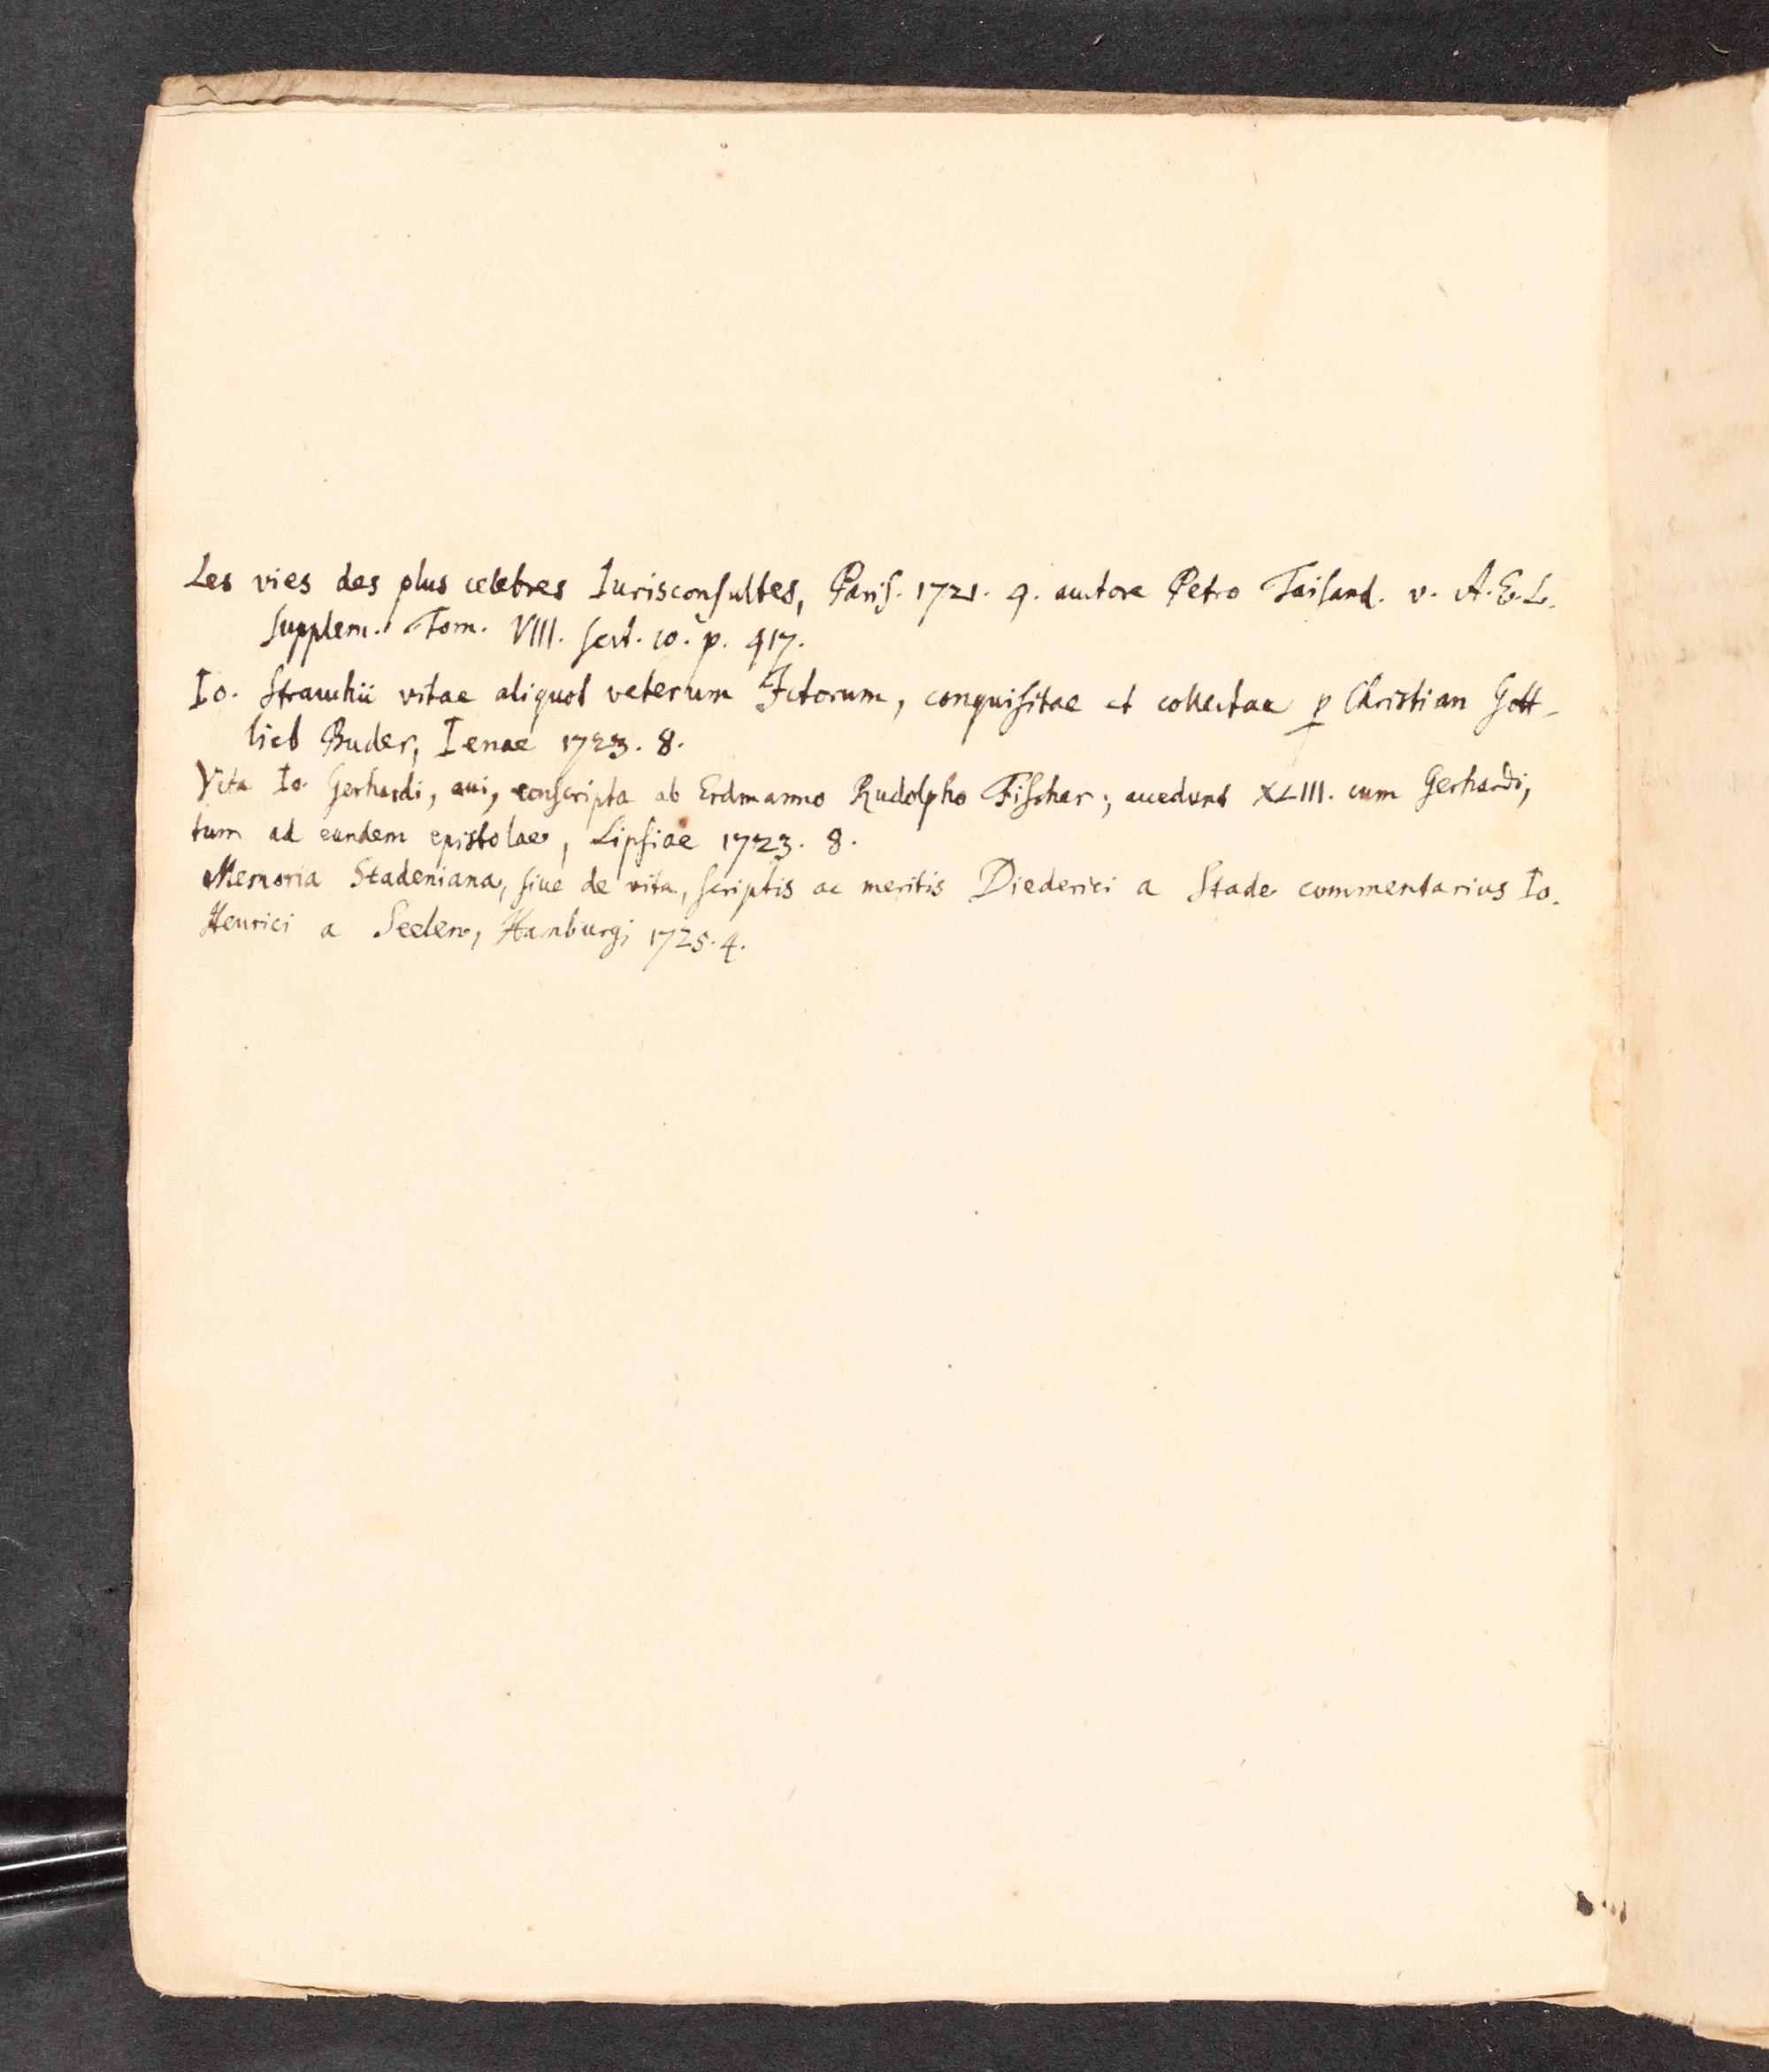 Les vies des plus celebres Iurisconsultes, Paris. 1721. 4. autore Petro Taisand. v. A. E. L.
Supplem. Tom. VIII. sect. 10. p. 417.
Io. Strauchii vitae aliquot veterum Ictorum, conquisitae et collectae p Christian Gott-
lieb Buder, Ienae 1723. 8.
Vita Io. Gerhardi, aui, conscripta ab Erdmanno Rudolpho Fischer; accedunt XLIII. cum Gerhardi,
tum ad eundem epistolae, Lipsiae 1723. 8.
Memoria Stadeniana, siue de vita, scriptis ac meritis Diederici a Stade commentarius Io.
Henrici a Seelen, Hamburgi 1725. 4.